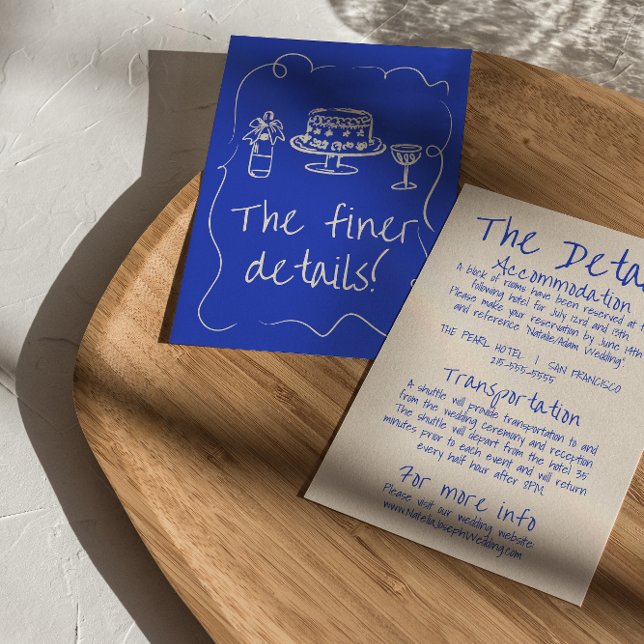 The finer
details!
The Deta
Accommodation
A block of rooms have been reserved at
following hotel for July 12rd and 13th
Please make your reservation by June 14th
and reference "Natalie/Adam Wedding".
THE PEARL HOTEL | SAN FRANCISCO
215-555-5555
Transportation
A shuttle will provide transportation to and
from the wedding ceremony and reception
The shuttle will depart from the hotel 35
minutes prior to each event and will return
every half hour after 8PM.
For more info
Please visit our wedding website:
www.NataliaJosephWedding.com